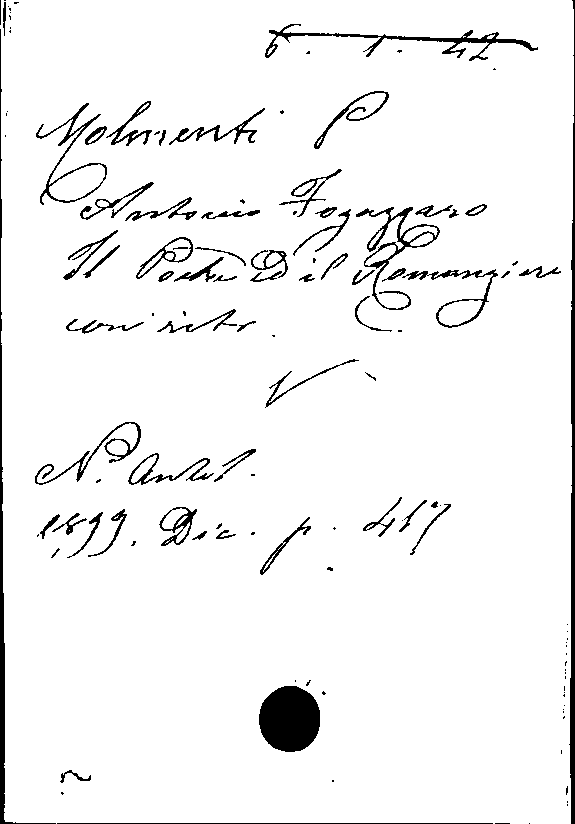 6. 1. 42
Molmenti P
Antonio Fogazzaro
Il Poeta e il Romanziere
con ritr.
N. Antol.
1899. Dic. p. 417